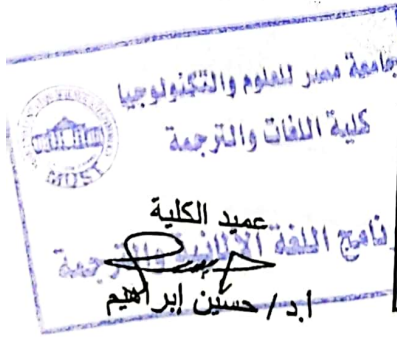 جامعة مصر للعلوم والتكنولوجيا
كلية اللغات والترجمة
MUST
عميد الكلية
نامج اللغة الألمانية والترجمة
أ.د / حسين إبراهيم